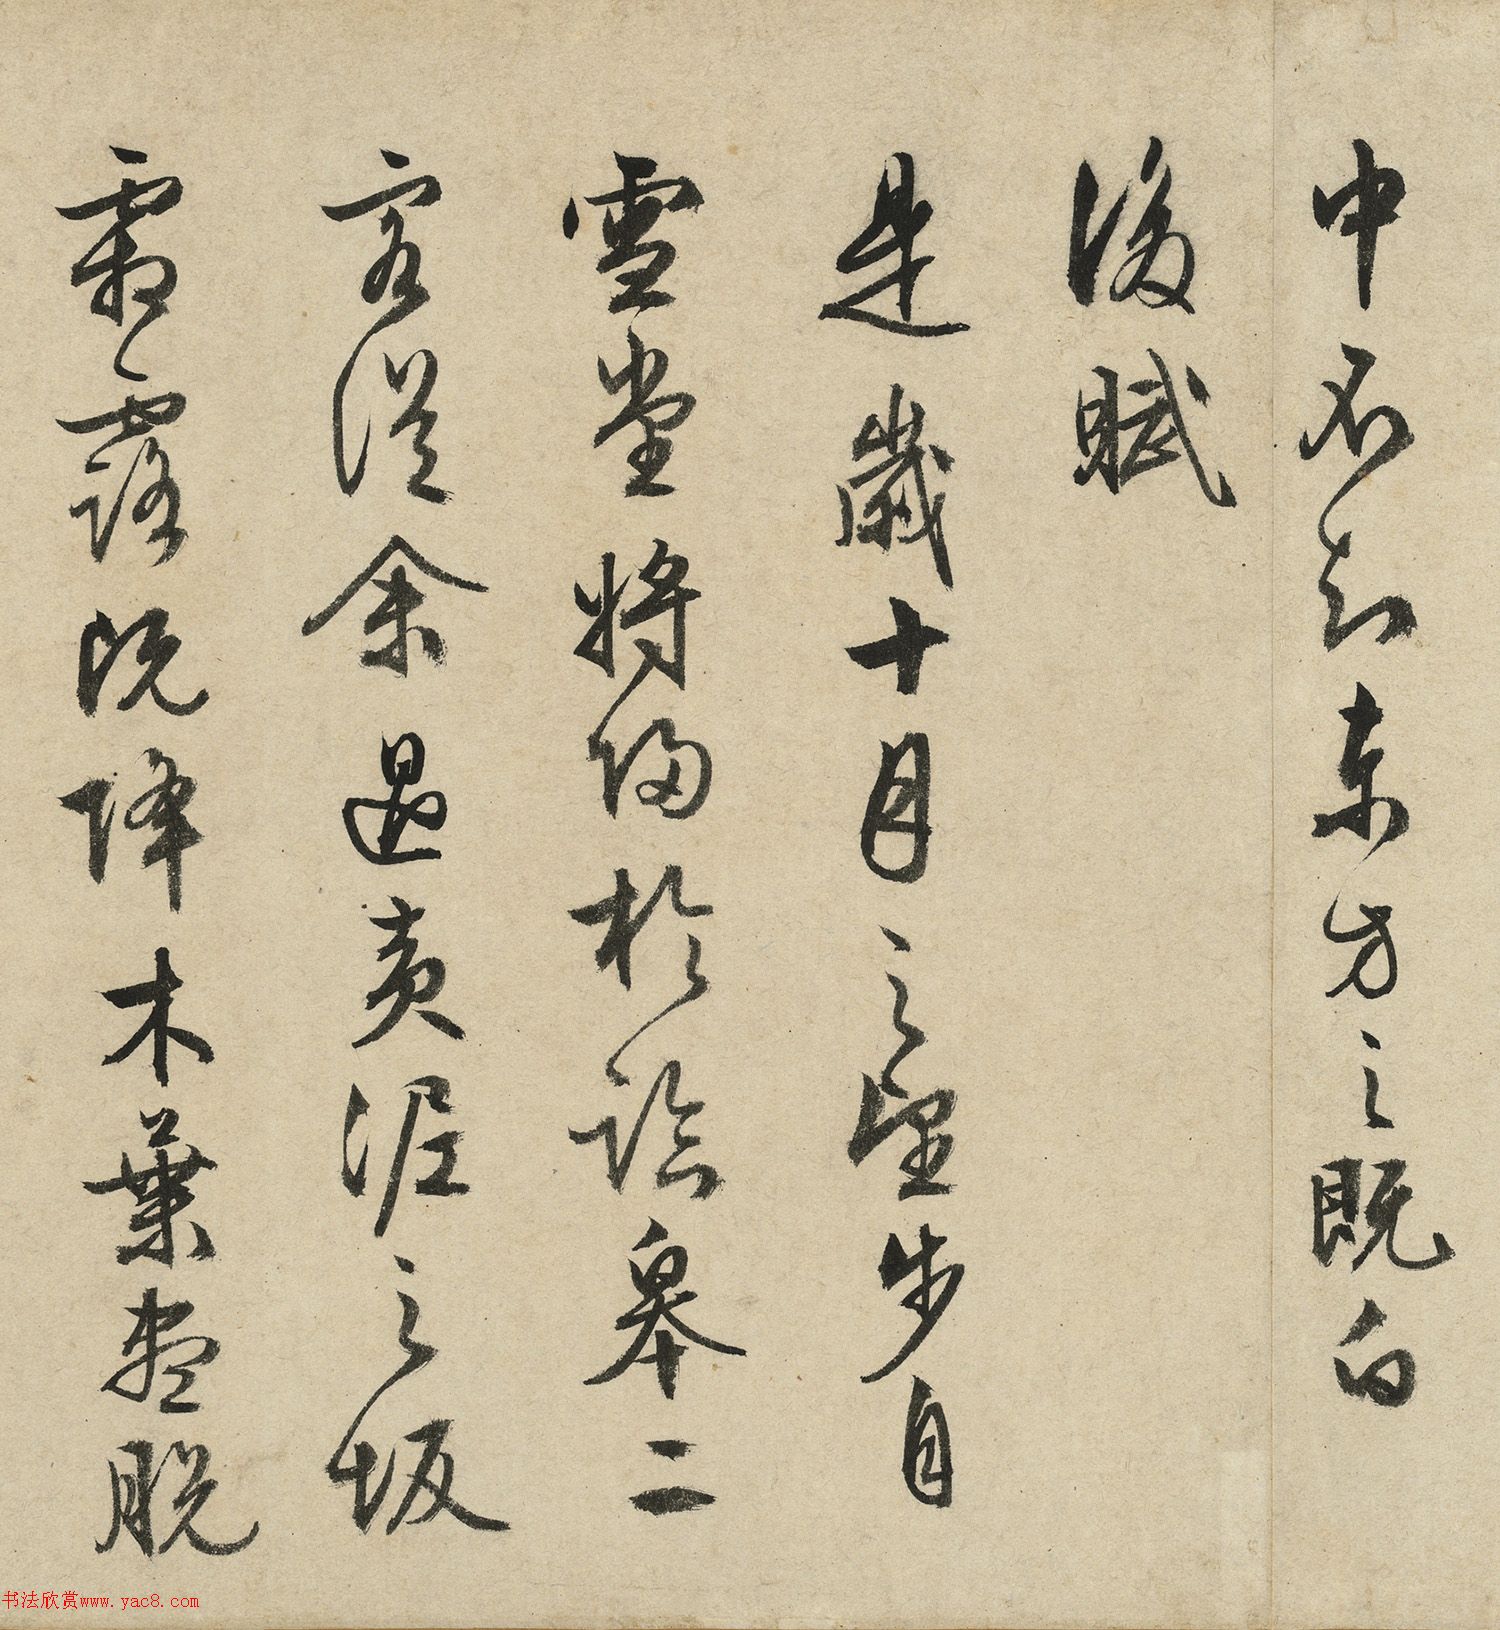 中不知東方之既白
後賦
是歲十月之望步自
雪堂將歸於臨皋二
客從余過黃泥之坂
霜露既降木葉盡脫
书法欣赏www.yac8.com